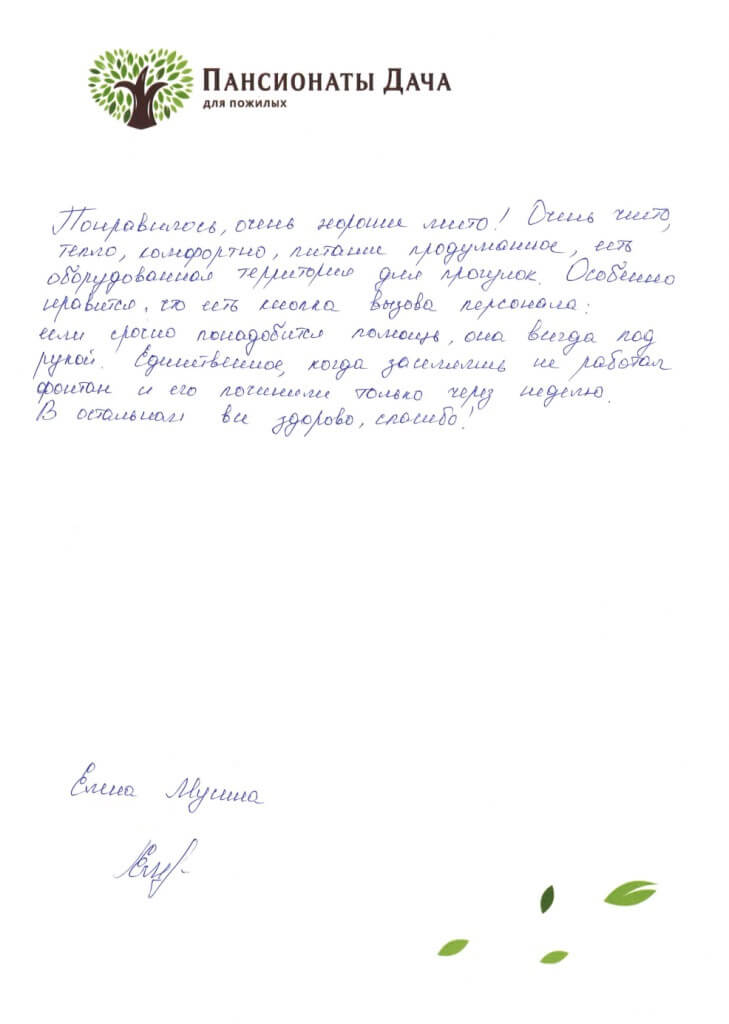 ПАНСИОНАТЫ ДАЧА
ДЛЯ ПОЖИЛЫХ
Понравилось, очень хорошее место! Очень чисто,
тепло, комфортно, питание продуманное, есть
оборудованная территория для прогулок. Особенно
нравится, что есть кнопка вызова персонала:
если срочно понадобится помощь, она всегда под
рукой. Единственное, когда заселялись не работал
фонтан и его починили только через неделю.
В остальном все здорово, спасибо!
Елена Мусина